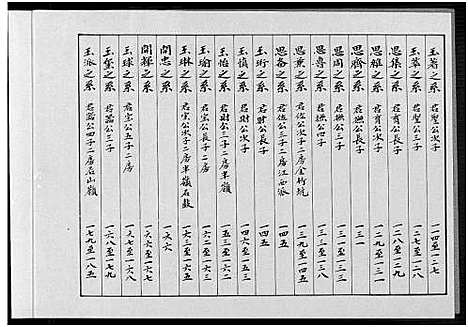 玉蒼之系 君聖公次子 一一四至一二七
玉華之系 君聖公三子 一二七至一二八
思集之系 君育公長子 一二八至一二九
思雅之系 君育公次子 一二九至一三一
思齊之系 君撫公長子 一三一
思周之系 君撫公三子 一三一至一三三
思喜之系 君撫公四子 一三三至一三八
思兼之系 君佐公次子二房金竹坑 一三九至一四五
思各之系 君佐公三子二房江西派 一四五
玉珩之系 君財公長子 一四五
玉慎之系 君財公次子 一四六至一五三
玉怡之系 君財公三子二房半嶺 一五三至一六二
玉瑜之系 君宝公長子二房 一六二至一六三
玉琳之系 君宝公次子二房半嶺石鼓 一六三至一六五
開忠之系 一六六
開輝之系 一六六至一六七
玉球之系 君宝公五子二房 一六七至一六八
玉璽之系 君器公三子 一六八至一七九
玉派之系 君器公四子二房石山嶺 一七九至一八五